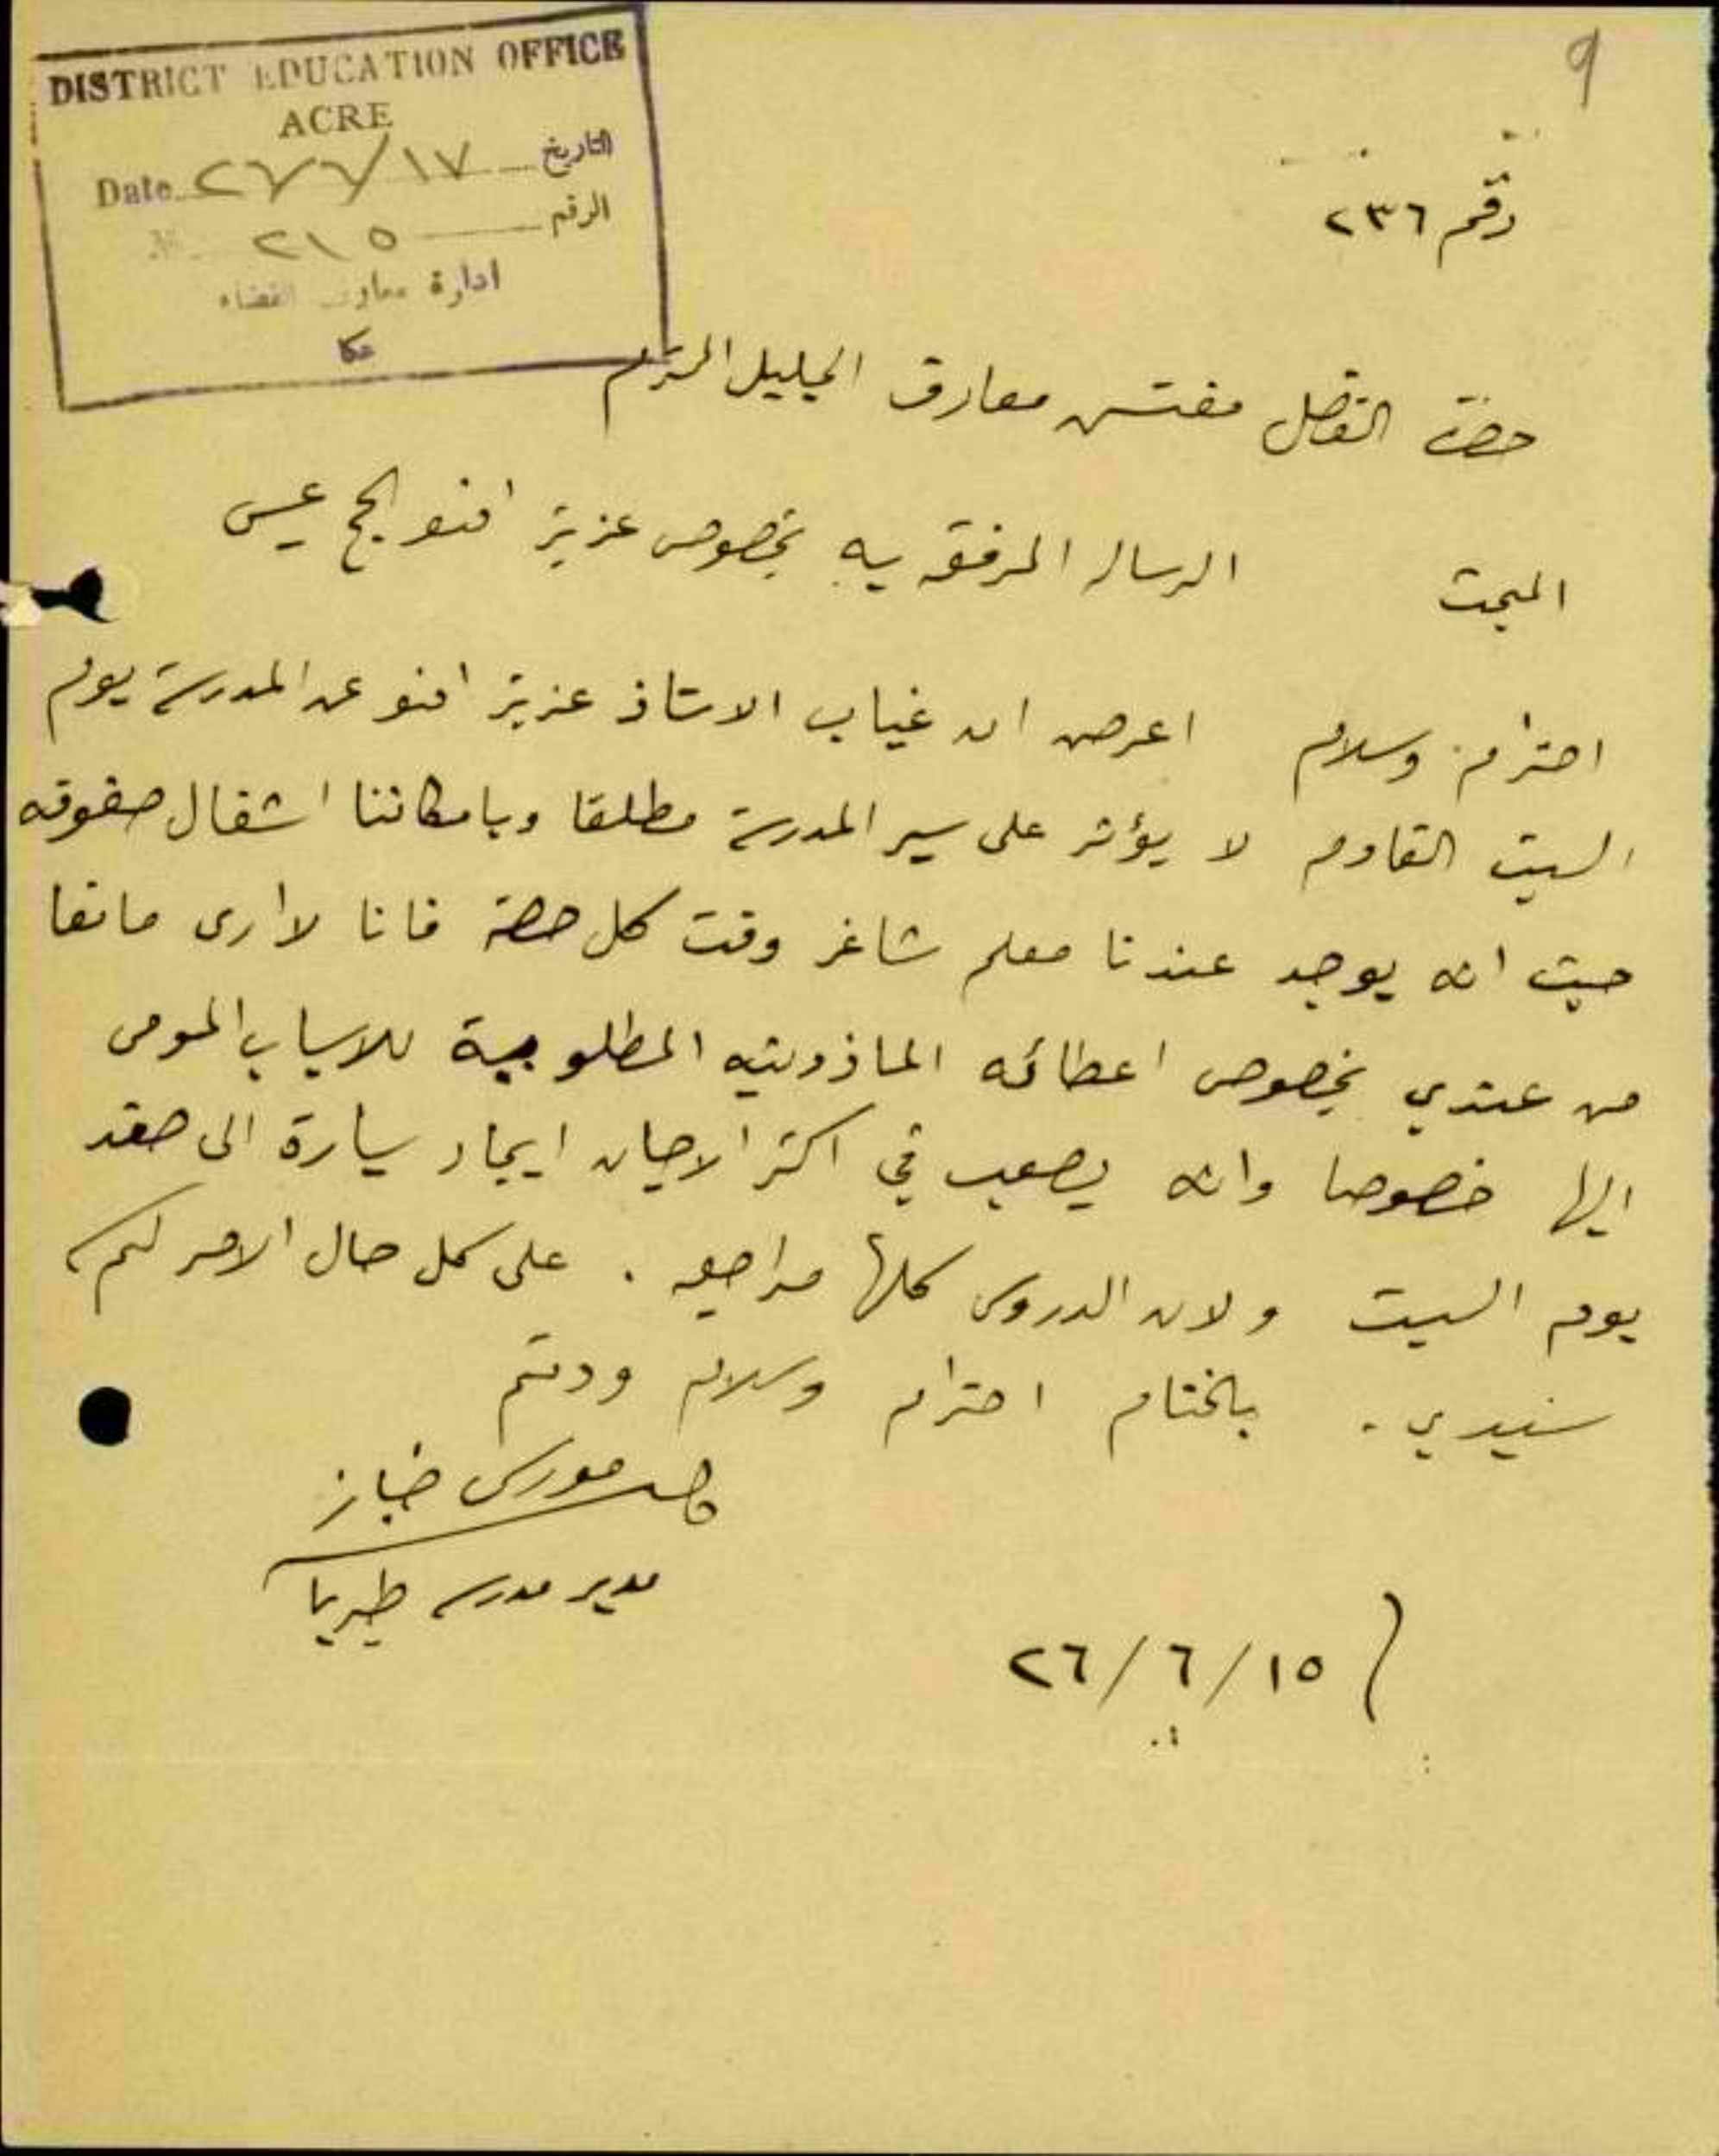 ٩
DISTRICT EDUCATION OFFICE
ACRE
Date ٢٦/٦/١٧ التاريخ
٢١٥ الرقم
ادارة معارف القضاء
عكا
رقم ٢٣٦
حضرة الفاضل مفتش معارف الجليل المحترم
المبحث الرساله المرفقه بيه بخصوص عزيز افندي الحج عيسى
احترام وسلام اعرض ان غياب الاستاذ عزيز افندي عن المدرسة يوم
السبت القادم لا يؤثر على سير المدرسة مطلقا وبامكاننا اشغال صفوفه
حيث انه يوجد عندنا معلم شاغر وقت كل حصة فانا لا ارى مانعا
من عندي بخصوص اعطائه الماذونيه المطلوبة للاسباب المومى
اليها خصوصا وانه يصعب في اكثر الاحيان ايجاد سيارة الى صفد
يوم السبت ولان الدروس كلها مراجعه . على كل حال الامر لكم
سيدي . بالختام احترام وسلام ودمتم
خباز
مدير مدرسة طبريا
٢٦/٦/١٥